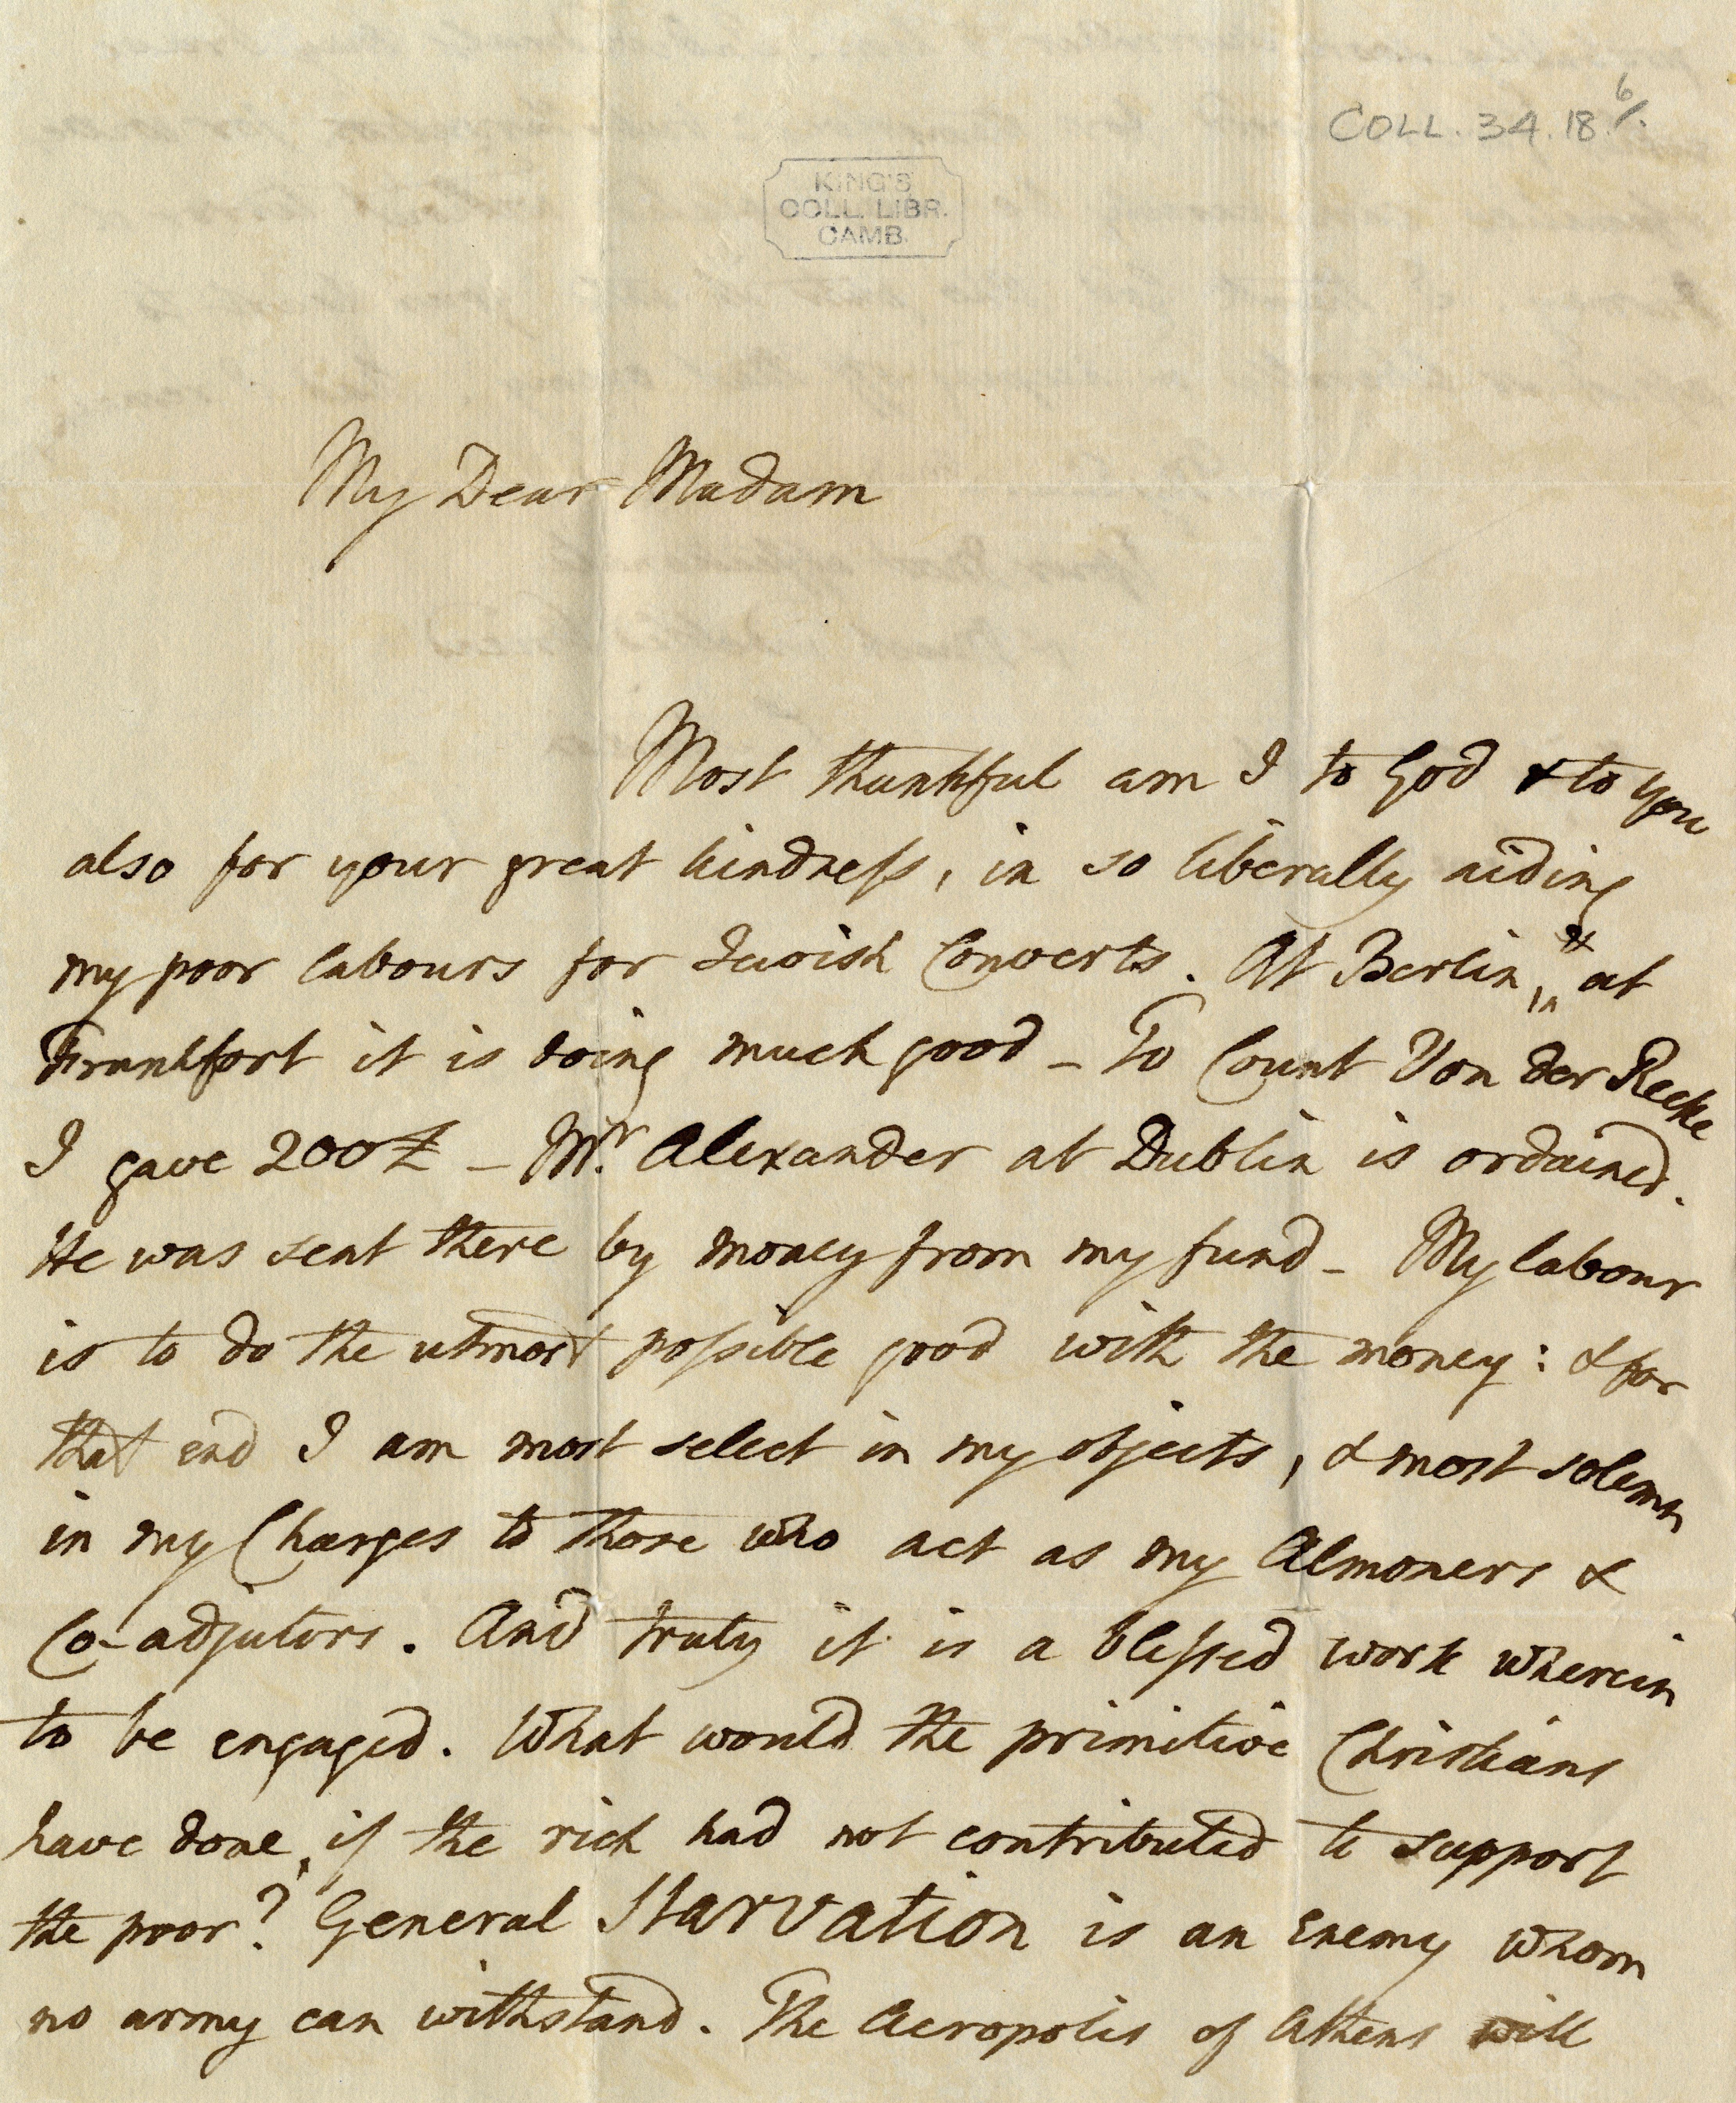 COLL. 34. 18. 6/.
KING'S
COLL. LIBR.
CAMB.
My Dear Madam
Most thankful am I to God & to you
also for your great kindneſs, in so liberally aiding
my poor labours for Jewish Converts. At Berlin, & at
Frankfort it is doing much good – To Count Von der Recke
I gave 200£ – Mr. Alexander at Dublin is ordained.
He was sent there by money from my fund – My labour
is to do the utmost poſsible good with the money: & for
that end I am most select in my objects, & most solemn
in my Charges to those who act as my Almoners &
Co-adjutors. And truly it is a bleſsed work wherein
to be engaged. What would the primitive Christians
have done, if the rich had not contributed to support
the poor? General Starvation is an Enemy whom
no army can withstand. The Acropolis of Athens will